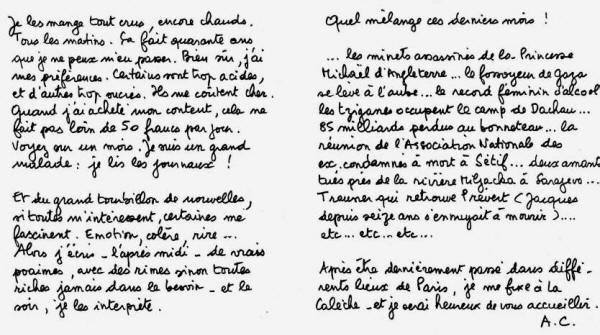 Je les mange tout crus, encore chauds.
Tous les matins. Ça fait quarante ans
que je ne peux m'en passer. Bien sûr, j'ai
mes préférences. Certains sont trop acides,
et d'autres trop sucrés. Ils me coûtent cher.
Quand j'ai acheté mon content, cela ne
fait pas loin de 50 francs par jour.
Voyez sur un mois. Je suis un grand
malade : je lis les journaux !
Et du grand tourbillon de nouvelles,
si toutes m'intéressent, certaines me
fascinent. Emotion, colère, rire ...
Alors j'écris - l'après midi - de vrais
poaimes, avec des rimes sinon toutes
riches jamais dans le besoin - et le
soir, je les interprète.
Quel mélange ces derniers mois !
... les minets assassinés de la Princesse
Michaël d'Angleterre ... le fossoyeur de Gaza
se lève à l'aube ... le record féminin d'alcool
les tziganes occupent le camp de Dachau ...
85 milliards perdus au bonneteau ... la
réunion de l'Association Nationale des
ex. condamnés à mort à Sétif ... deux amants
tués près de la rivière Miljacka à Sarajevo ...
Trenner qui retrouve Prévert (Jacques
depuis seize ans s'ennuyait à mourir) ....
etc ... etc .. etc ...
Après être dernièrement passé dans diffé-
rents lieux de Paris, je me fixe à La
Calèche - et je serai heureux de vous accueillir.
A.C.